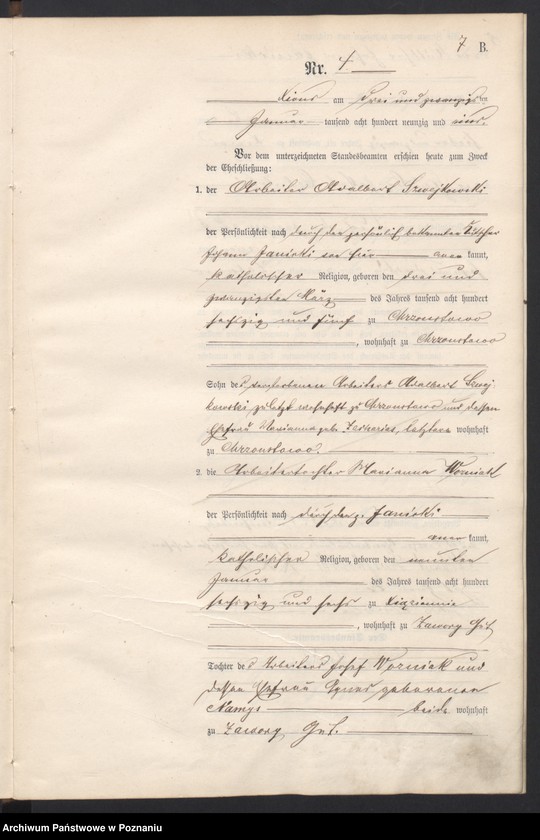 7 B.
Nr. 4
Xions am drei und zwanzigsten
Januar tausend acht hundert neunzig und eins.
Vor dem unterzeichneten Standesbeamten erschien heute zum Zweck
der Eheschließung:
1. der Arbeiter Adalbert Szwajkowski
der Persönlichkeit nach durch den persönlich bekannten
Johann Janicki von hier aner kannt,
katholischer Religion, geboren den drei und
zwanzigsten März des Jahres tausend acht hundert
sechszig und fünf zu Chrzonstowo
, wohnhaft zu Chrzonstowo
Sohn des verstorbenen Arbeiters Adalbert Szwaj
kowski, zuletzt wohnhaft zu Chrzonstowo und dessen
Ehefrau Marianna geb. letztere wohnhaft
zu Chrzonstowo.
2. die Arbeitertochter Marianna Wozniak
der Persönlichkeit nach durch den p. Janicki
aner kannt,
katholischer Religion, geboren den neunten
Januar des Jahres tausend acht hundert
sechszig und sechs zu
, wohnhaft zu Zawory Gut
Tochter des Arbeiters Josef Wozniak und
dessen Ehefrau Agnes geborenen
Namys beide wohnhaft
zu Zawory Gut.
Archiwum Państwowe w Poznaniu